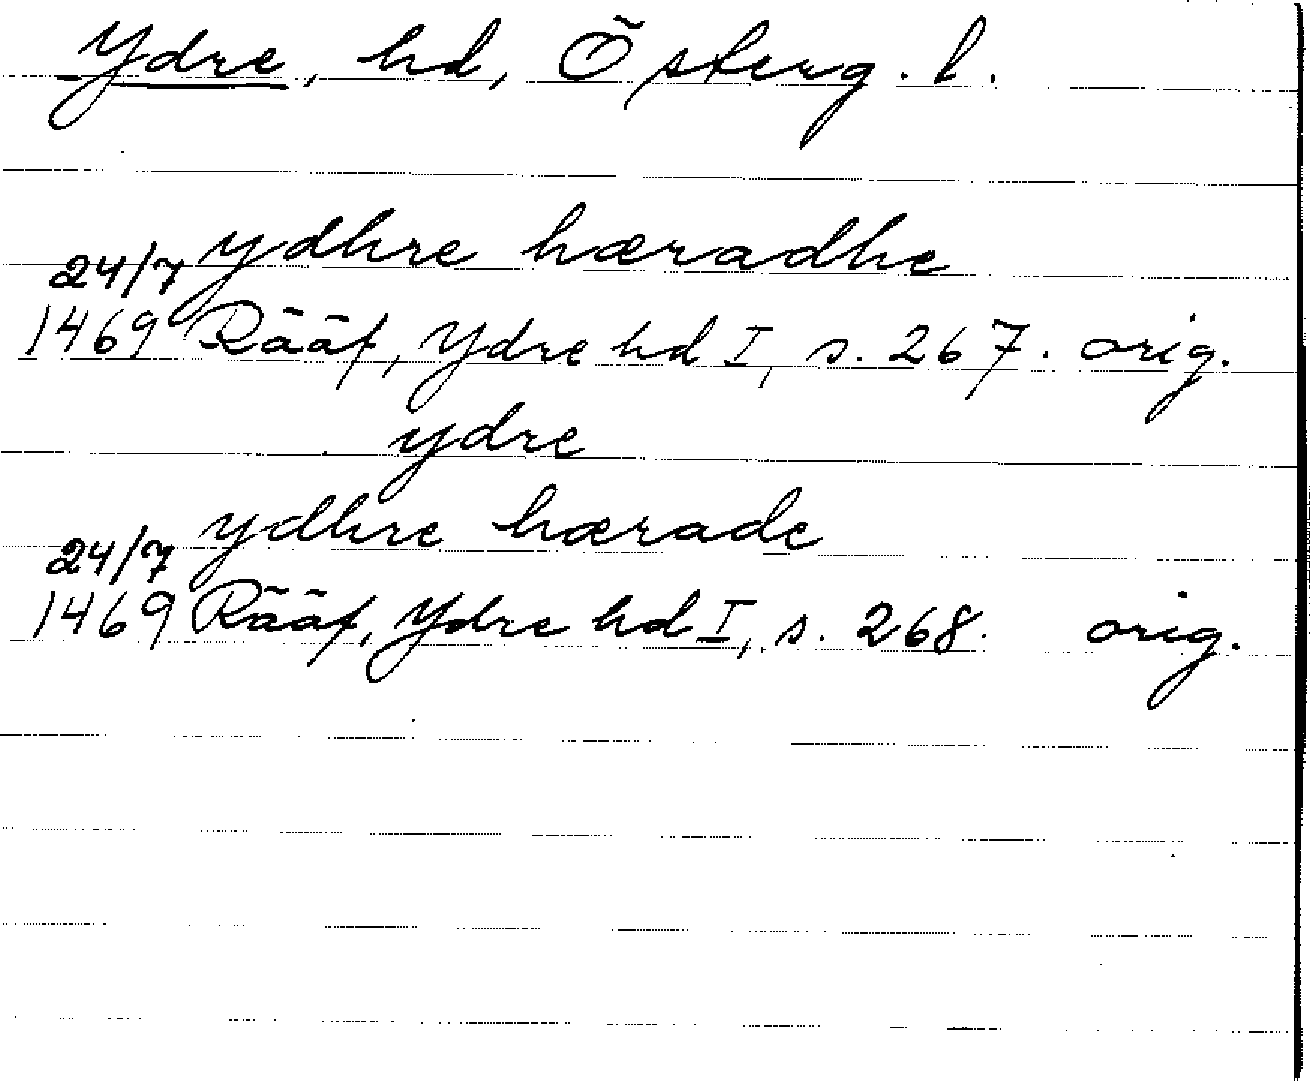 Ydre, hd, Österg. l.
ydhre hæradhe
24/7
1469 Rääf, Ydre hd I, s. 267. orig.
ydre
ydhre hærade
24/7
1469 Rääf, Ydre hd I, s. 268. orig.